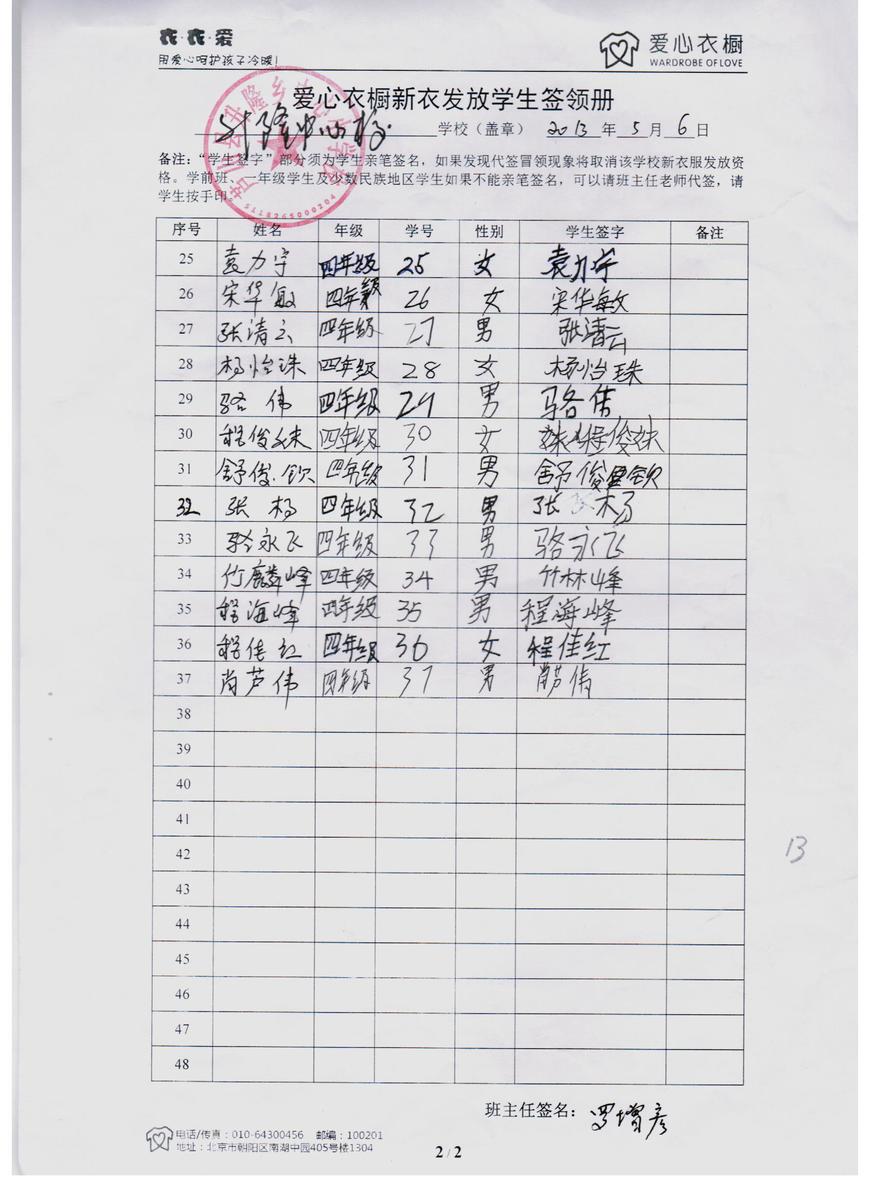 衣·衣·爱
用爱心呵护孩子冷暖!
爱心衣橱
WARDROBE OF LOVE
爱心衣橱新衣发放学生签领册
升隆中心校 学校（盖章） 2013 年 5 月 6 日
备注：“学生签字”部分须为学生亲笔签名，如果发现代签冒领现象将取消该学校新衣服发放资
格。学前班、一年级学生及少数民族地区学生如果不能亲笔签名，可以请班主任老师代签，请
学生按手印。
5118265000204
序号 姓名 年级 学号 性别 学生签字 备注
25 袁力宇 四年级 25 女 袁力宇
26 宋华敏 四年级 26 女 宋华敏
27 张清云 四年级 27 男 张清云
28 杨怡珠 四年级 28 女 杨怡珠
29 骆伟 四年级 29 男 骆伟
30 程俊妹 四年级 30 女 程俊妹
31 舒俊钦 四年级 31 男 舒俊钦
32 张杨 四年级 32 男 张杨
33 骆永飞 四年级 33 男 骆永飞
34 竹麟峰 四年级 34 男 竹林峰
35 程海峰 四年级 35 男 程海峰
36 程佳红 四年级 36 女 程佳红
37 肖芦伟 四年级 37 男 肖芦伟
38
39
40
41
42
43
44
45
46
47
48
13
班主任签名：罗增彦
电话/传真：010-64300456 邮编：100201
地址：北京市朝阳区南湖中园405号楼1304
2 / 2